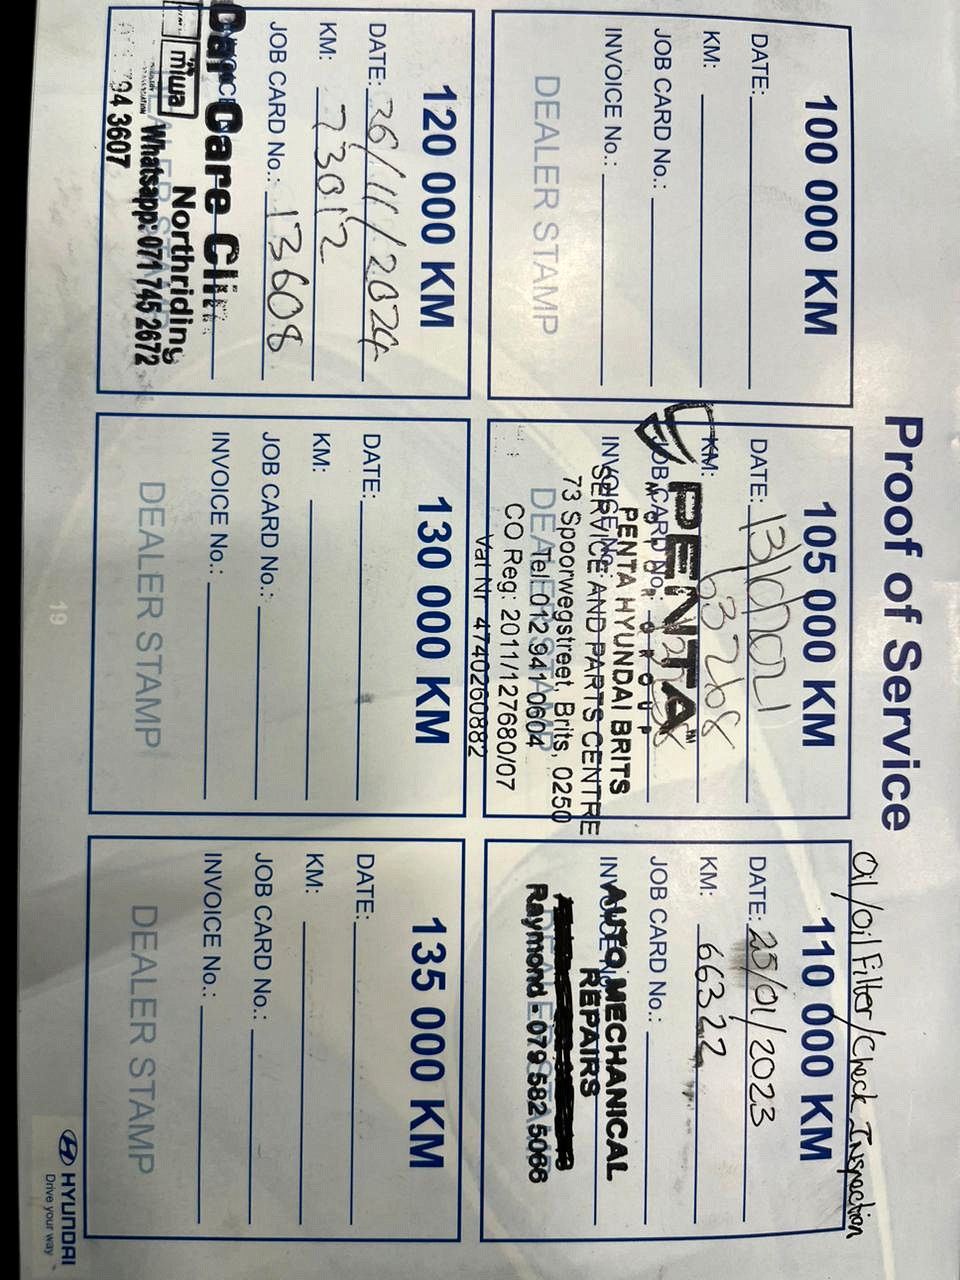 Proof of Service
Oil/Oil Filter/Check Inspection
100 000 KM
DATE:
KM:
JOB CARD No.:
INVOICE No.:
DEALER STAMP
105 000 KM
DATE: 13/
KM: 63268
JOB CARD No.:
INVOICE No.:
DEALER STAMP
PENTA™
MOTOR GROUP
PENTA HYUNDAI BRITS
SERVICE AND PARTS CENTRE
73 Spoorwegstreet, Brits, 0250
Tel: 012 941 0604
CO Reg: 2011/127680/07
Vat Nr 4740260882
110 000 KM
DATE: 25/01/2023
KM: 66322
JOB CARD No.:
INVOICE No.:
DEALER STAMP
AUTO MECHANICAL
REPAIRS
Raymond - 079 582 5066
120 000 KM
DATE: 26/11/2024
KM: 73012
JOB CARD No.: 13608
INVOICE No.:
DEALER STAMP
Car Care Clinic
Northriding
miwa
Whatsapp: 071 745 2672
94 3607
130 000 KM
DATE:
KM:
JOB CARD No.:
INVOICE No.:
DEALER STAMP
135 000 KM
DATE:
KM:
JOB CARD No.:
INVOICE No.:
DEALER STAMP
19
HYUNDAI
Drive your way